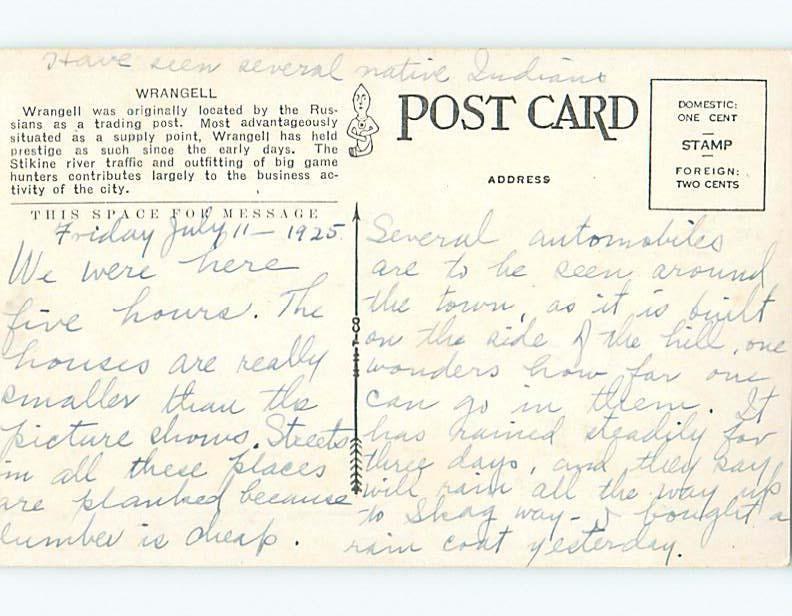 Have seen several native Indians
WRANGELL
Wrangell was originally located by the Rus-
sians as a trading post. Most advantageously
situated as a supply point, Wrangell has held
prestige as such since the early days. The
Stikine river traffic and outfitting of big game
hunters contributes largely to the business ac-
tivity of the city.
THIS SPACE FOR MESSAGE
Friday July 11 - 1925.
We were here
five hours. The
houses are really
smaller than the
picture shows. Streets
in all these places
are planked because
lumber is cheap.
POST CARD
ADDRESS
DOMESTIC:
ONE CENT
STAMP
FOREIGN:
TWO CENTS
Several automobiles
are to be seen around
the town, as it is built
on the side of the hill, one
wonders how far one
can go in them. It
has rained steadily for
three days, and they say
will rain all the way up
to Skag way - I bought a
rain coat yesterday.